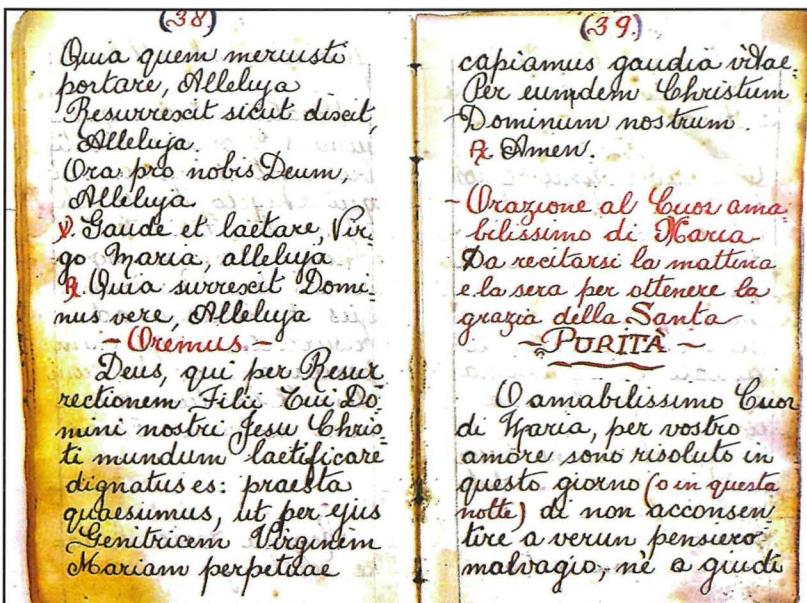 (38)
Quia quem meruisti
portare, Alleluja
Resurrexit sicut dixit,
Alleluja.
Ora pro nobis Deum,
Alleluja.
℣. Gaude et laetare, Vir-
go Maria, alleluja
℟. Quia surrexit Domi-
nus vere, Alleluja
- Oremus -
Deus, qui per Resur
rectionem Filii Tui Do-
mini nostri Jesu Chris-
ti mundum laetificare
dignatus es: praesta
quaesumus, ut per ejus
Genitricem Virginem
Mariam perpetuae
(39.)
capiamus gaudia vitae.
Per eumdem Christum
Dominum nostrum.
℟. Amen.
- Orazione al Cuor ama-
bilissimo di Maria
Da recitarsi la mattina
e la sera per ottenere la
grazia della Santa
~ PURITÀ ~
O amabilissimo Cuor
di Maria, per vostro
amore sono risoluto in
questo giorno (o in questa
notte) di non acconsen
tire a verun pensiero
malvagio, nè a giudi